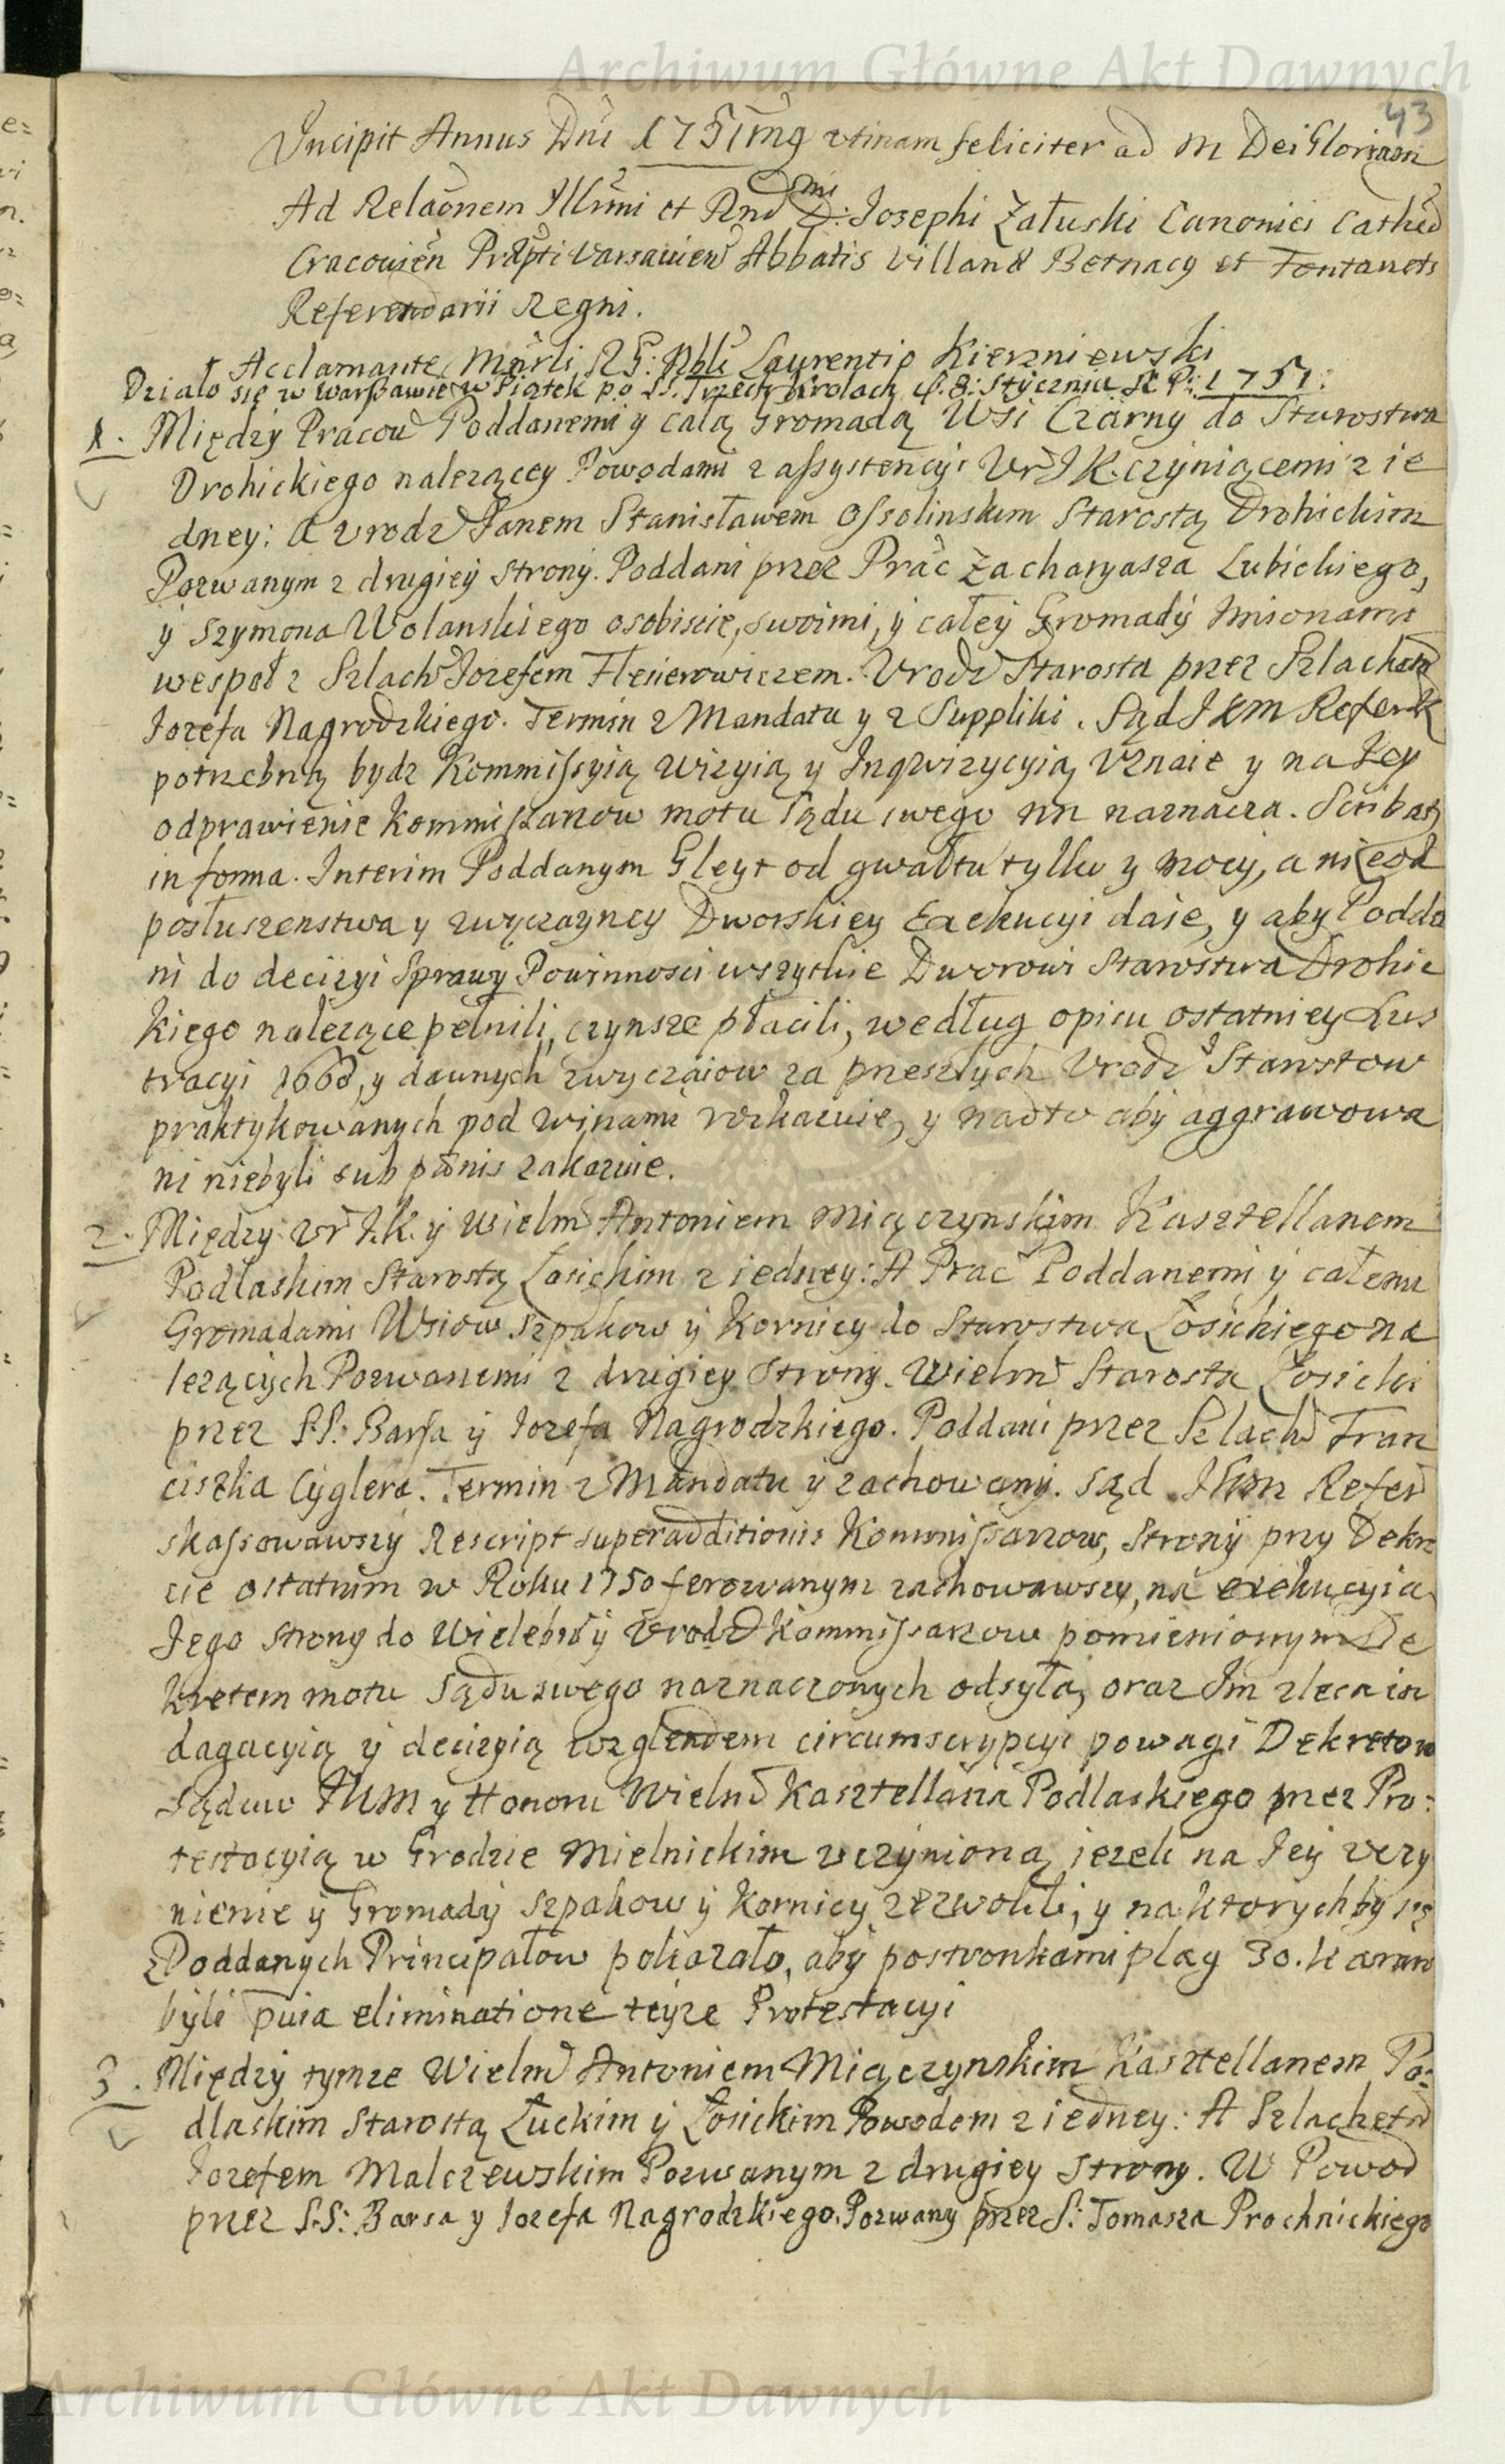 Archiwum Główne Akt Dawnych
43
Incipit Annus Dni 1751mg utinam feliciter ad M Dei Gloriam
Ad Relaõnem Illimi et Rnd Dmi: Josephi Załuski Canonici Cathed
Cracovien Præpti Varsavien Abbatis Villand Bernacy et Fontanets
Referendarii Regni.
Acclamante Mnrli RG: Nbli Laurentio Kierzniewski
Działo się w Warszawie w Piątek po SS. Trzech Krolach d. 8: Stycznia R P: 1751:
1. Między Pracou Poddanemi y całą Gromadą Wsi Czarny do Starostwa
Drohickiego nalezącey Powodami z assystencyi Vr J K. czyniącemi z ie
dney: A Vrodz Janem Stanisławem Ossolinskim Starostą Drohickim
Pozwanym z drugiey strony. Poddani przez Prac Zacharyasza Lubickiego,
y Szymona Wolanskiego osobiscie, swoimi, y całey Gromady Imionami
wespoł z Szlach Jozefem Fleierowiczem. Vrodz Starosta przez Szlachetn
Jozefa Nagrodzkiego. Termin z Mandatu y z Suppliki. Sąd JKM Referen
potrzebną bydz Kommissyią Wizyią y Inqwizycyią Vznaie y na Jey
odprawienie Kommissarzow motu Sądu swego nn naznacza. Scribatz
in forma. Interim Poddanym Gleyt od gwałtu tylko y mocy, a nie od
posłuszenstwa y zwyczayney Dworskiey Exekucyi daie, y aby Podda
ni do decizyi Sprawy Powinnosci wszytkie Dworowi Starostwa Drohic
kiego nalezące pełnili, czynsze płacili, według opisu ostatniey Lus
tracyi 1660, y dawnych zwyczaiow za przeszłych Vrodz Starostow
praktykowanych pod winami rozkazuie, y nadto aby aggrawowa
ni niebyli sub pœnis zakazuie.
2. Między Vr J.K. y Wielm Antoniem Miączynskim Kasztellanem
Podlaskim Starostą Łosickim z iedney: A Prac Poddanemi y całemi
Gromadami Wsiow Szpakow y Kornicy do Starostwa Łosickiego na
lezących Pozwanemi z drugiey strony. Wielm Starosta Łosicki
przez S.S: Barsa y Jozefa Nagrodzkiego. Poddani przez Szlach Fran
ciszka Cyglera. Termin z Mandatu y zachowany. Sąd JKM Refer
skassowawszy Rescript superadditionis Kommissarzow, Strony przy Dekre
cie ostatnim w Roku 1750 ferowanym zachowawszy, na exekucyią
Jego strony do Wielebn y Vrodz Kommissarzow pomienionym De
kretem motu Sądu swego naznaczonych odsyła, oraz Im zleca in
dagacyią y decizyią względem circumscrypcyi powagi Dekretow
Sądow JKM y Honoru Wielm Kasztellana Podlaskiego przez Pro:
testacyią w Grodzie Mielnickim uczynioną, iezeli na Jey uczy
nienie y Gromady Szpakow y Kornicy zezwolili, y na ktorych by się
Poddanych Principałow pokazało, aby postronkami plag 30. karani
byli pvia eliminatione teyze Protestacyi
3. Między tymze Wielm Antoniem Miączynskim Kasztellanem Po:
dlaskim Starostą Łuckim y Łosickim Powodem z iedney: A Szlachetn
Jozefem Malczewskim Pozwanym z drugiey strony. W Powod
przez S.S: Barsa y Jozefa Nagrodzkiego. Pozwany przez S: Tomasza Prochnickiego
Archiwum Główne Akt Dawnych